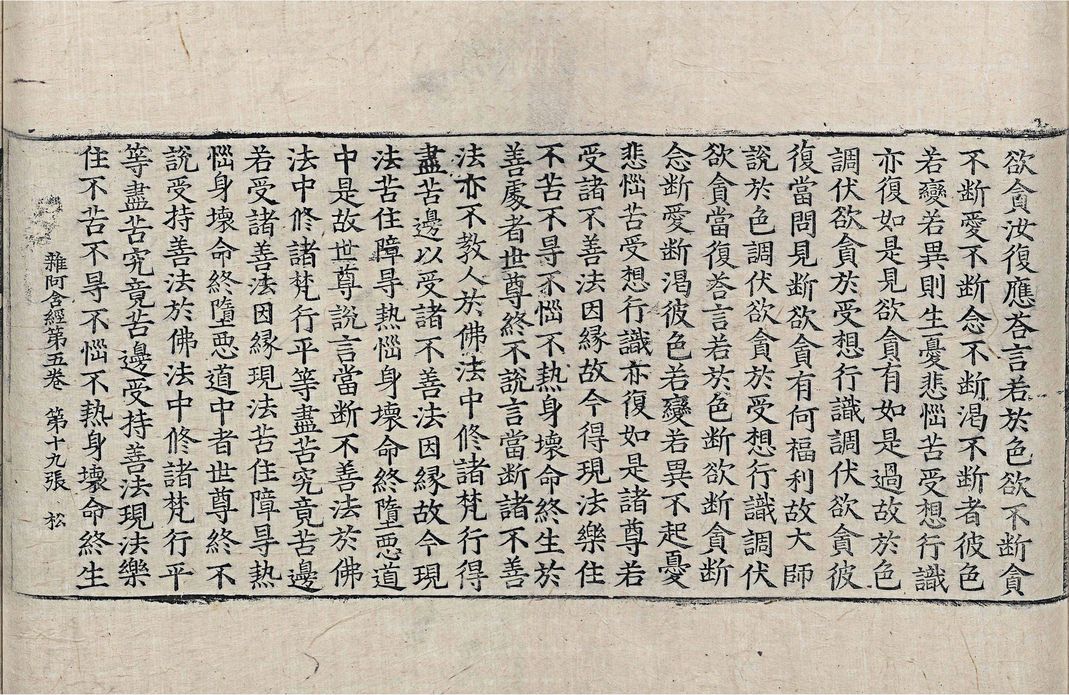 欲貪汝復應荅言若於色欲不断貪
不断愛不断念不断渴不断者彼色
若變若異則生憂悲惱苦受想行識
亦復如是見欲貪有如是過故於色
調伏欲貪於受想行識調伏欲貪彼
復當問見断欲貪有何福利故大師
說於色調伏欲貪於受想行識調伏
欲貪當復荅言若於色断欲断貪断
念断愛断渴彼色若變若異不起憂
悲惱苦受想行識亦復如是諸尊若
受諸不善法因緣故今得現法樂住
不苦不㝵不惱不熱身壞命終生於
善處者世尊終不說言當断諸不善
法亦不教人於佛法中修諸梵行得
盡苦邊以受諸不善法因緣故今現
法苦住障㝵熱惱身壞命終墮惡道
中是故世尊說言當断不善法於佛
法中修諸梵行平等盡苦究竟苦邊
若受諸善法因緣現法苦住障㝵熱
惱身壞命終墮惡道中者世尊終不
說受持善法於佛法中修諸梵行平
等盡苦究竟苦邊受持善法現法樂
住不苦不㝵不惱不熱身壞命終生
雜阿含經第五卷 第十九張 松